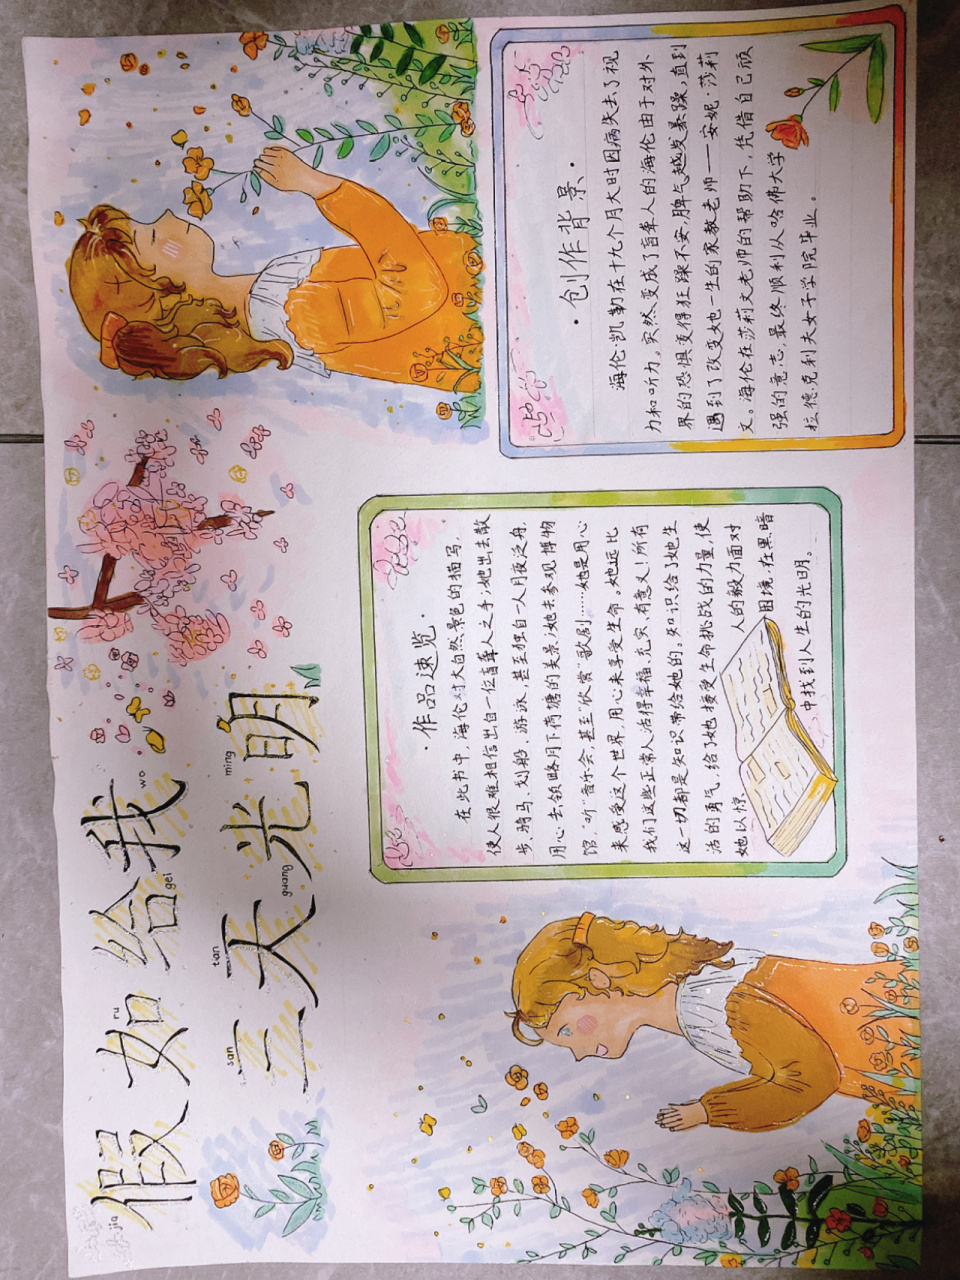 jia ru gei wo
假如给我
san tian guang ming
三天光明
·作品速览·
在此书中,海伦对大自然景色的描写,
使人很难相信出自一位盲聋人之手;她出去散
步,骑马,划船,游泳,甚至独自一人月夜泛舟,
用心去领略月下荷塘的美景;她去参观博物
馆,“听”音乐会,甚至“欣赏”歌剧……她是用心
来感受这个世界,用心来享受生命。她远比
我们这些正常人活得幸福、充实、有意义!所有
这一切都是知识带给她的。知识给了她生
活的勇气,给了她接受生命挑战的力量,使
她以惊人的毅力面对
困境,在黑暗
中找到人生的光明。
·创作背景·
海伦凯勒在十九个月大时因病失去了视
力和听力。突然变成了盲聋人的海伦由于对外
界的恐惧变得狂躁不安,脾气越发暴躁,直到
遇到了改变她一生的家教老师——安妮·莎莉
文。海伦在莎莉文老师的帮助下,凭借自己顽
强的意志,最终顺利从哈佛大学
拉德克利夫女子学院毕业。